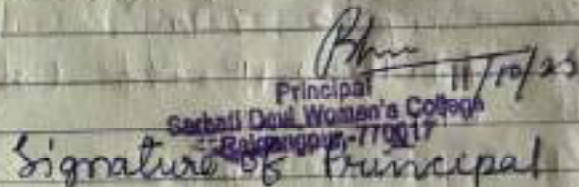 11/10/23
Principal
Sarbati Devi Women's College
Rajgangpur,-770017
Signature of Principal